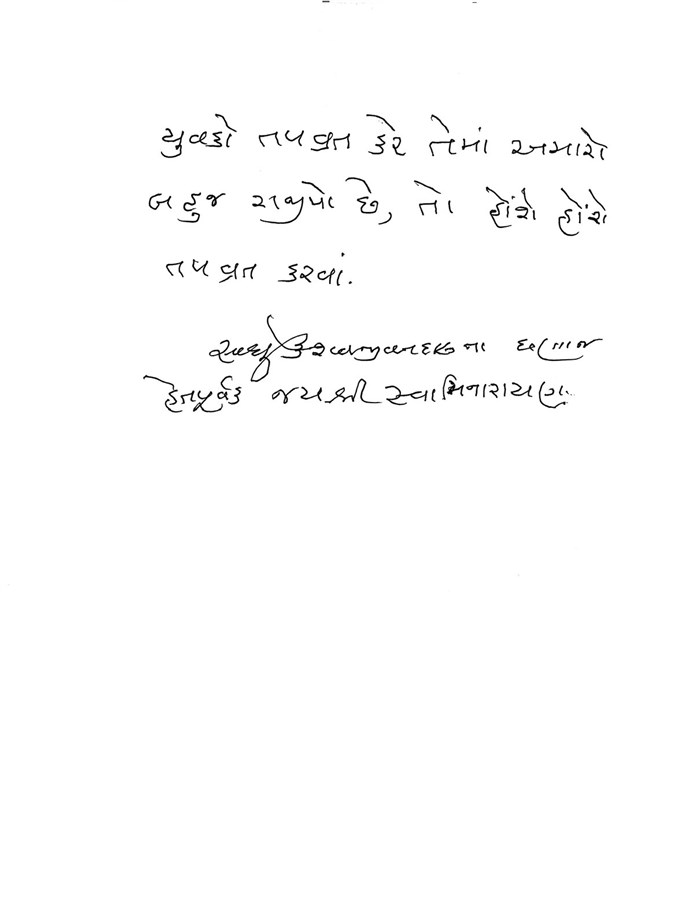 યુવકો તપ વ્રત કરે તેમાં અમારો
બહુજ રાજીપો છે, તો હોંશે હોંશે
તપ વ્રત કરવાં.
સાધુ કેશવજીવનદાસના ઘણા જ
હેતપૂર્વક જય શ્રી સ્વામિનારાયણ.